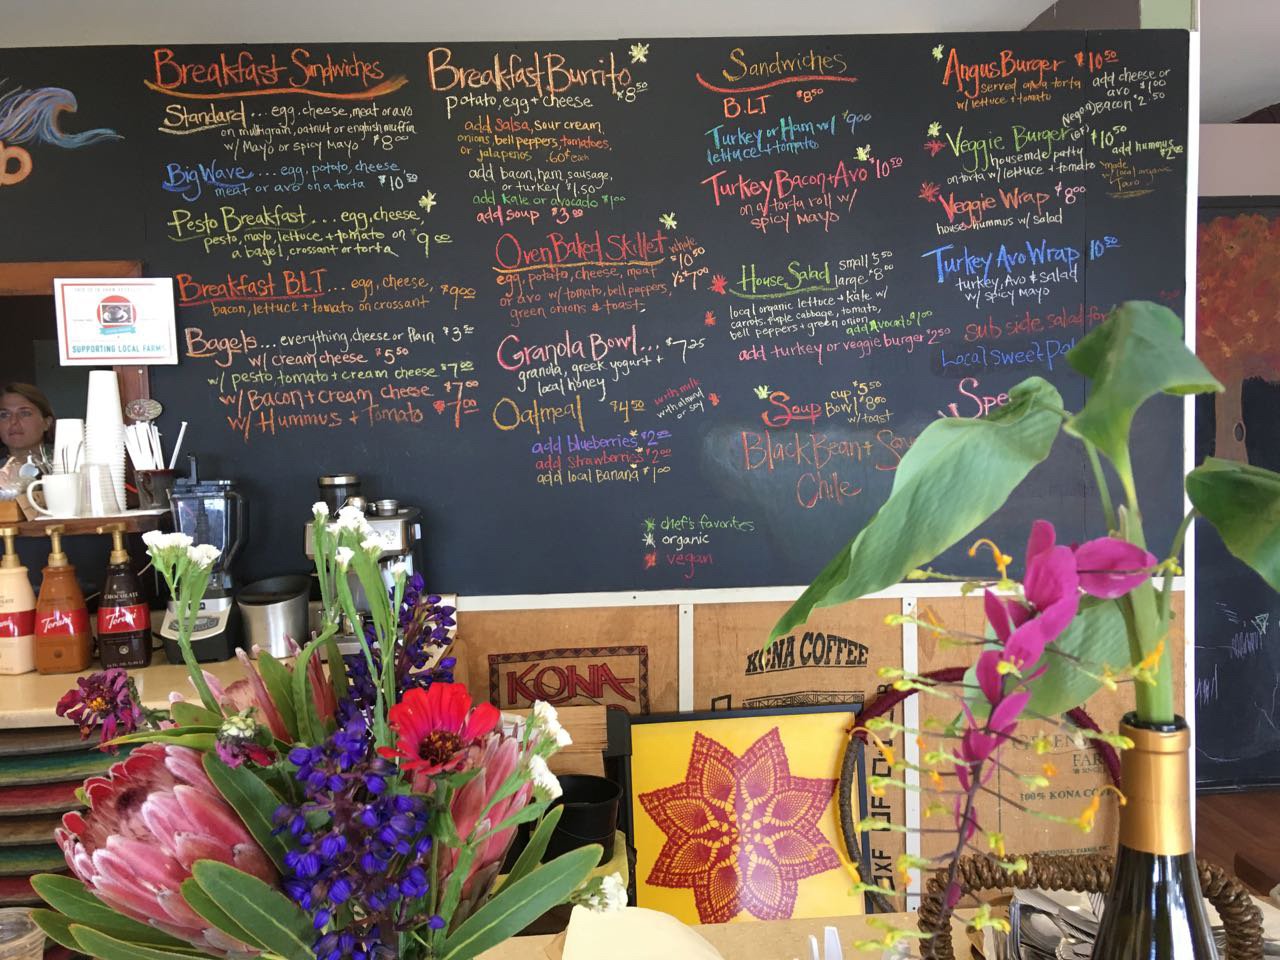 Breakfast Sandwiches
Standard ... egg, cheese, meat or avo
on multigrain, oatnut or english muffin
w/ Mayo or spicy Mayo $8.00
Big Wave ... egg, potato, cheese,
meat or avo on a torta $10.50
Pesto Breakfast ... egg, cheese,
pesto, mayo, lettuce + tomato on
a bagel, crossant or torta $9.00
Breakfast BLT ... egg, cheese,
bacon, lettuce + tomato on crossant $9.00
Bagels ... everything, cheese or Plain $3.50
w/ cream cheese $5.50
w/ pesto tomato + cream cheese $7.00
w/ Bacon + cream cheese $7.00
w/ Hummus + Tomato
Breakfast Burrito
potato, egg + cheese $8.50
add salsa, sour cream,
onions, bell peppers, tomatoes,
or jalapenos .60¢ each
add bacon, ham, sausage,
or turkey $1.50
add kale or avocado $1.00
add soup $3.00
Oven Baked Skillet whole $10.50
egg, potato, cheese, meat 1/2 $7.00
or avo w/ tomato, bell peppers,
green onions & toast
Granola Bowl... $7.25
granola, greek yogurt +
local honey
Oatmeal $4.50 with milk
with almond
or soy
add blueberries $2.00
add strawberries $2.00
add local Banana $1.00
Sandwiches
B.L.T $8.50
Turkey or Ham w/ $9.00
lettuce + tomato
Turkey Bacon + Avo $10.50
on a torta roll w/
spicy Mayo
House Salad small 5.50
large $8.00
local organic lettuce + kale w/
carrots, purple cabbage, tomato,
bell peppers + green onion
add Avocado $1.00
add turkey or veggie burger $2.50
Soup cup $5.50
Bowl $8.00
w/ toast
Black Bean +
Chile
chef's favorites
organic
vegan
Angus Burger $10.50
served on a torta
w/ lettuce + tomato
add cheese or
avo $1.00
Bacon $2.50
Veggie Burger (Vegan) $10.50
housemade patty
on torta w/ lettuce + tomato
add hummus $2.00
made
w/ local organic
Taro
Veggie Wrap $8.00
house hummus w/ salad
Turkey Avo Wrap 10.50
turkey, Avo & salad
w/ spicy Mayo
sub side salad for
Local Sweet
SUPPORTING LOCAL FARMS
Torani
Torani
Torani
KONA
KONA COFFEE
100% KONA